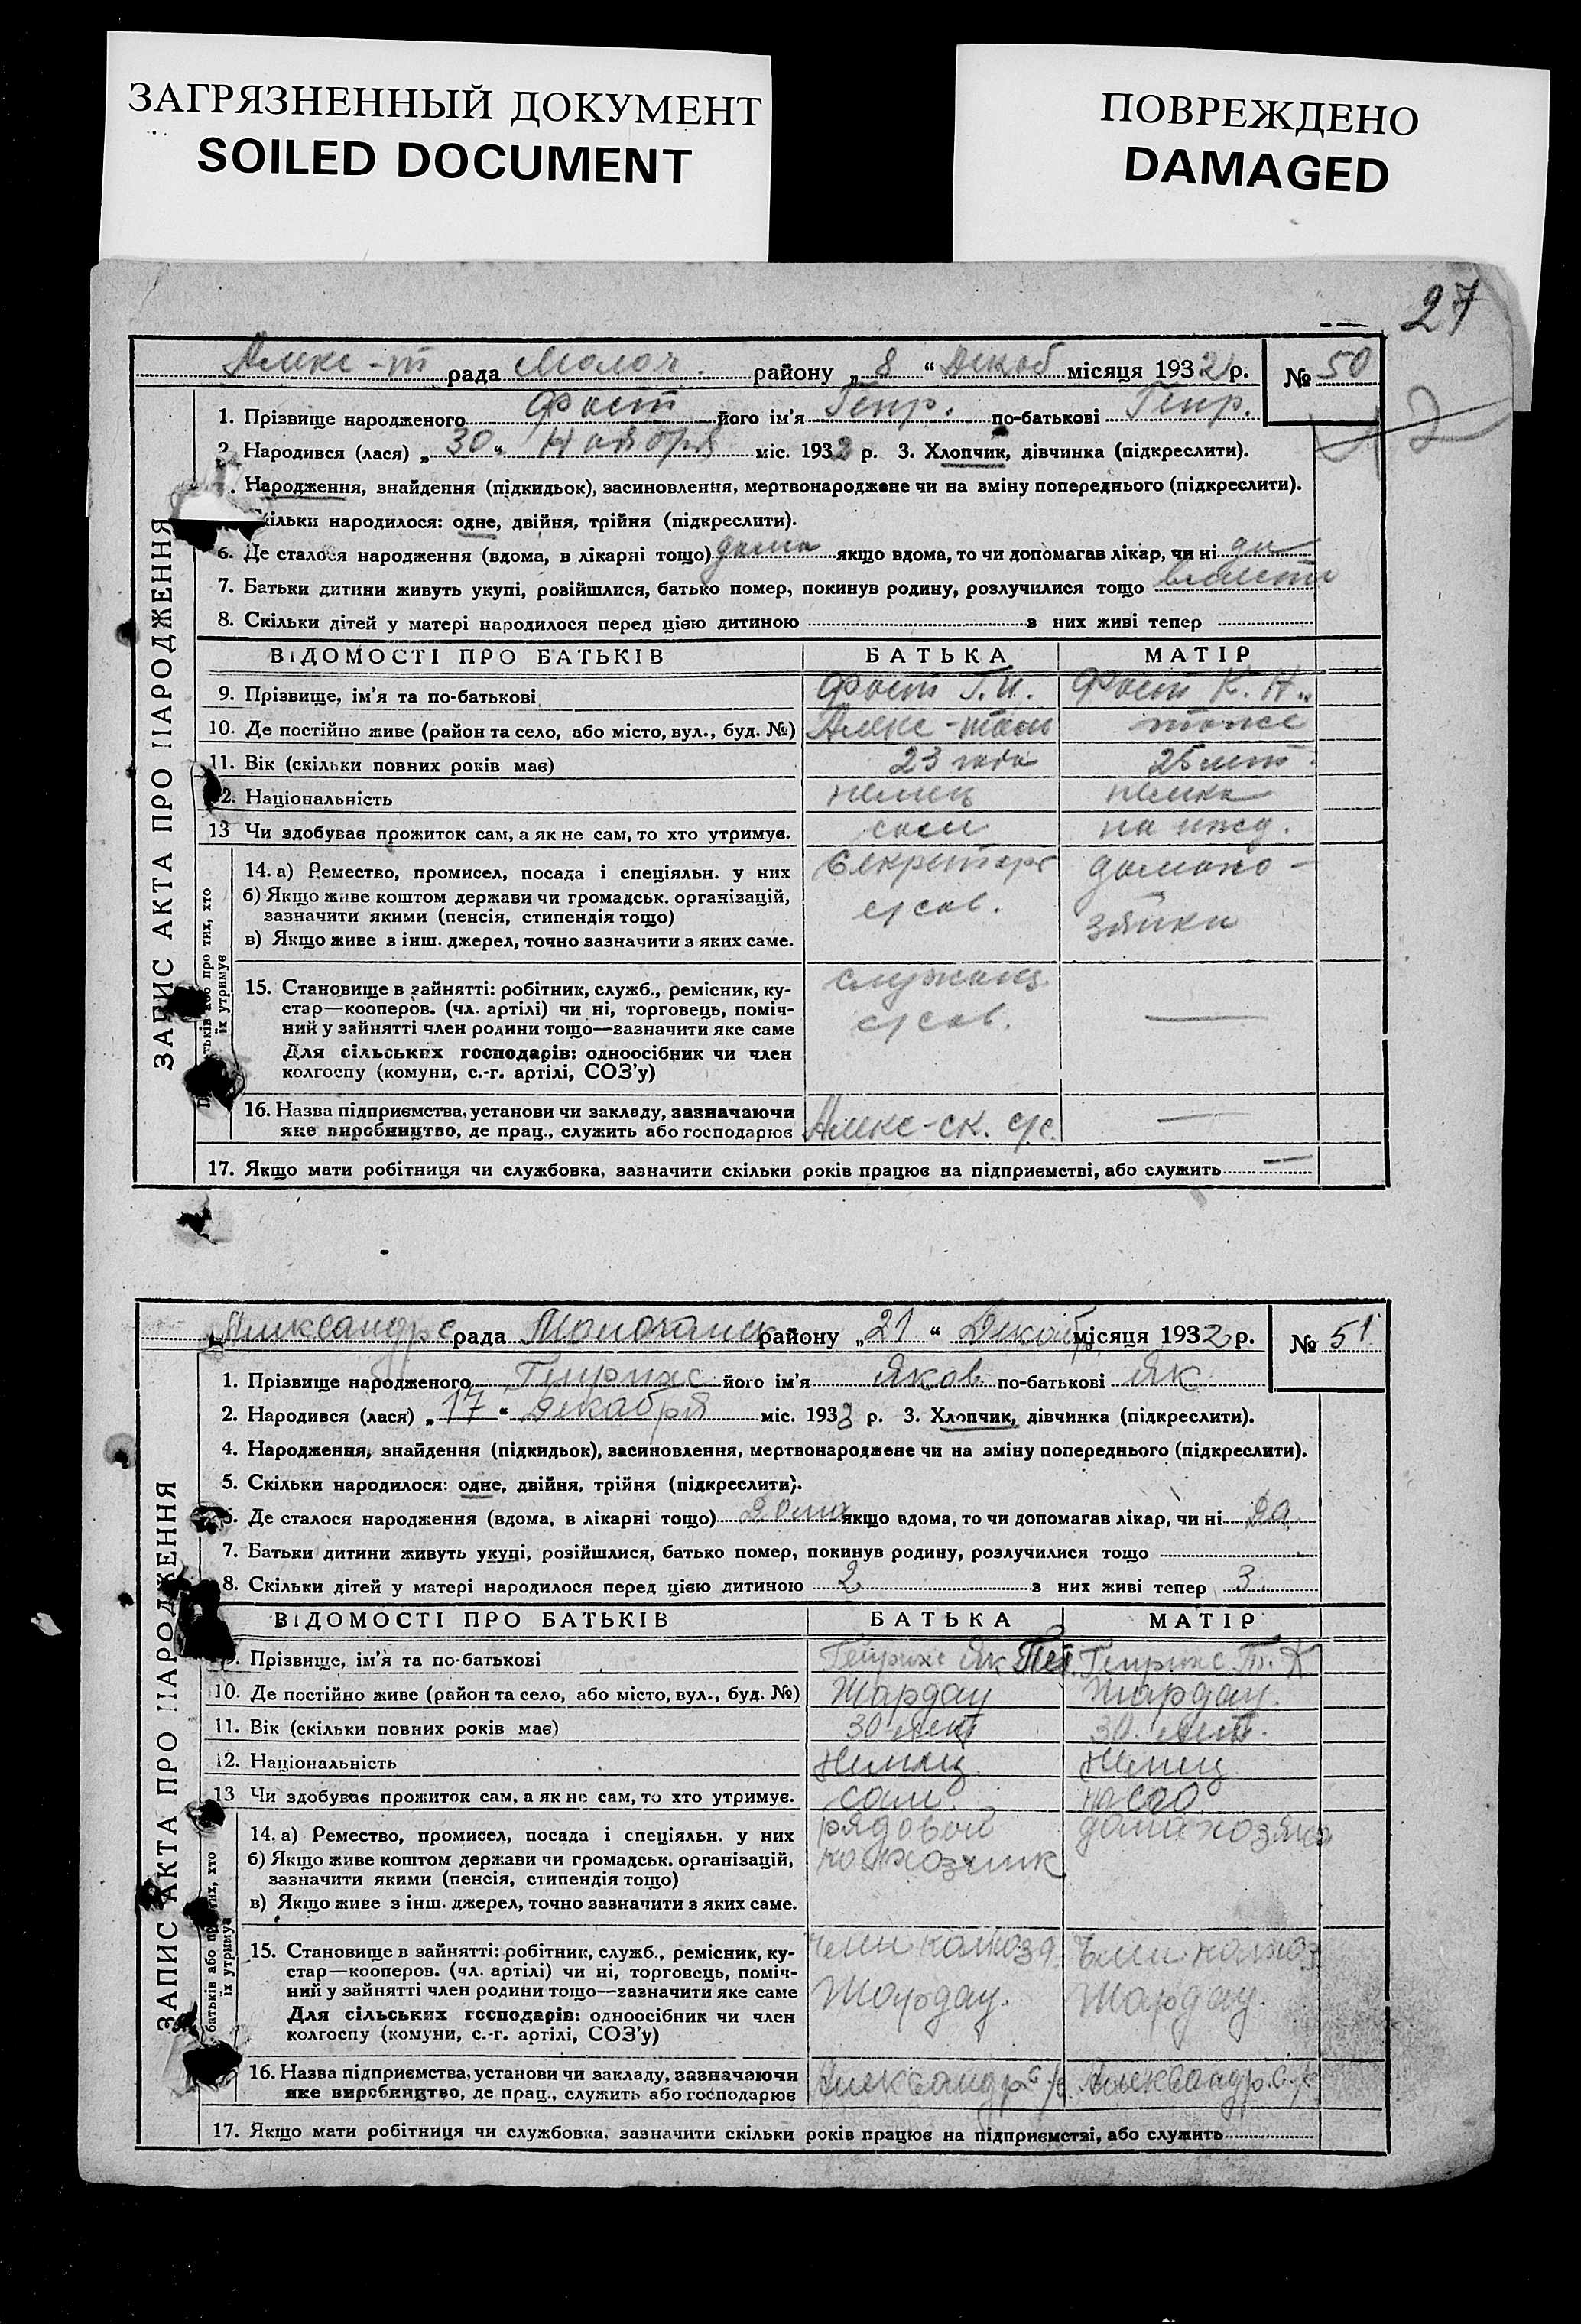 ЗАГРЯЗНЕННЫЙ ДОКУМЕНТ
SOILED DOCUMENT
ПОВРЕЖДЕНО
DAMAGED
27
Алекс-т рада Молоч. району „ 8 “ Декаб місяця 1932 р. № 50
1. Прізвище народженого Фаст його ім'я Генр. по-батькові Генр.
2. Народився (лася) „ 30 “ Ноября міс. 1932 р. 3. Хлопчик, дівчинка (підкреслити).
. Народження, знайдення (підкидьок), засиновлення, мертвонароджене чи на зміну попереднього (підкреслити).
кільки народилося: одне, двійня, трійня (підкреслити).
6. Де сталося народження (вдома, в лікарні тощо) дома якщо вдома, то чи допомагав лікар, чи ні да
7. Батьки дитини живуть укупі, розійшлися, батько помер, покинув родину, розлучилися тощо вместе
8. Скільки дітей у матері народилося перед цією дитиною з них живі тепер
ВІДОМОСТІ ПРО БАТЬКІВ БАТЬКА МАТІР
9. Прізвище, ім'я та по-батькові Фаст Г. И. Фаст К. Н.
10. Де постійно живе (район та село, або місто, вул., буд. №) Алекс-таль тоже
11. Вік (скільки повних років має) 23 года 25 лет
12. Національність немец немка
13 Чи здобуває прожиток сам, а як не сам, то хто утримує. сам на ижд.
14. а) Ремество, промисел, посада і спеціяльн. у них Секретарь домохо-
б) Якщо живе коштом держави чи громадськ. організацій,
зазначити якими (пенсія, стипендія тощо) с/сов. зяйки
в) Якщо живе з інш. джерел, точно зазначити з яких саме.
15. Становище в зайнятті: робітник, служб., ремісник, ку- служащ. —
стар—кооперов. (чл. артілі) чи ні, торговець, поміч- с/сов.
ний у зайнятті член родини тощо—зазначити яке саме
Для сільських господарів: одноосібник чи член
колгоспу (комуни, с.-г. артілі, СОЗ'у)
16. Назва підприємства, установи чи закладу, зазначаючи
яке виробництво, де прац., служить або господарює Алекс-ск. с/с. —
17. Якщо мати робітниця чи службовка, зазначити скільки років працює на підприємстві, або служить —
ЗАПИС АКТА ПРО НАРОДЖЕННЯ
Александрс рада Молочанск району „ 21 “ Декабр місяця 1932 р. № 51
1. Прізвище народженого Гейрихс його ім'я Яков по-батькові Як
2. Народився (лася) „ 17 “ Декабря міс. 1932 р. 3. Хлопчик, дівчинка (підкреслити).
4. Народження, знайдення (підкидьок), засиновлення, мертвонароджене чи на зміну попереднього (підкреслити).
5. Скільки народилося: одне, двійня, трійня (підкреслити).
6. Де сталося народження (вдома, в лікарні тощо) Дома якщо вдома, то чи допомагав лікар, чи ні Да
7. Батьки дитини живуть укупі, розійшлися, батько помер, покинув родину, розлучилися тощо
8. Скільки дітей у матері народилося перед цією дитиною 2 з них живі тепер 3
ВІДОМОСТІ ПРО БАТЬКІВ БАТЬКА МАТІР
9. Прізвище, ім'я та по-батькові Гейрихс Як Пет Гейрихс Т. К
10. Де постійно живе (район та село, або місто, вул., буд. №) Мардау Мардау.
11. Вік (скільки повних років має) 30 лет 30. лет.
12. Національність Немец Немец
13 Чи здобуває прожиток сам, а як не сам, то хто утримує. сам.
14. а) Ремество, промисел, посада і спеціяльн. у них рядовой домохозяка
б) Якщо живе коштом держави чи громадськ. організацій, колхозчик
зазначити якими (пенсія, стипендія тощо)
в) Якщо живе з інш. джерел, точно зазначити з яких саме.
15. Становище в зайнятті: робітник, служб., ремісник, ку- Член колхоза Член колхоз
стар—кооперов. (чл. артілі) чи ні, торговець, поміч-
ний у зайнятті член родини тощо—зазначити яке саме Мардау. Мардау.
Для сільських господарів: одноосібник чи член
колгоспу (комуни, с.-г. артілі, СОЗ'у)
16. Назва підприємства, установи чи закладу, зазначаючи
яке виробництво, де прац., служить або господарює Александр с/с. Александр. с/с
17. Якщо мати робітниця чи службовка, зазначити скільки років працює на підприємстві, або служить
ЗАПИС АКТА ПРО НАРОДЖЕННЯ